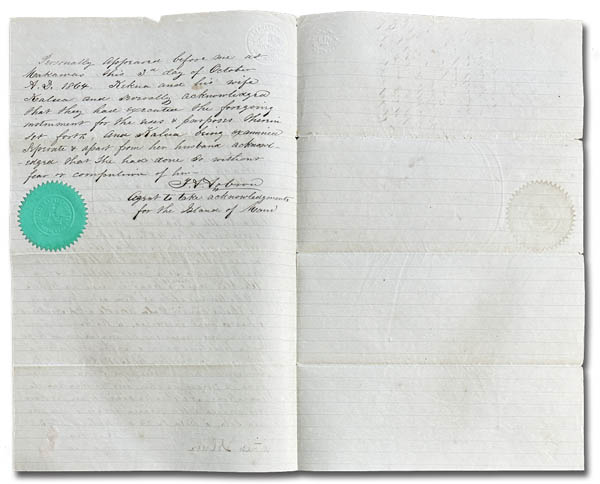 Personally appeared before me at
Makawao this 3rd day of October
A.D. 1864 Kekua and his wife
Kalua and severally acknowledged
that they had executed the foregoing
instrument for the uses & purposes therein
set forth, And Kalua being examined
separate & apart from her husband acknowl-
edged that she had done so without
fear or compulsion of him—
Agent to take acknowledgments
for the Island of Maui